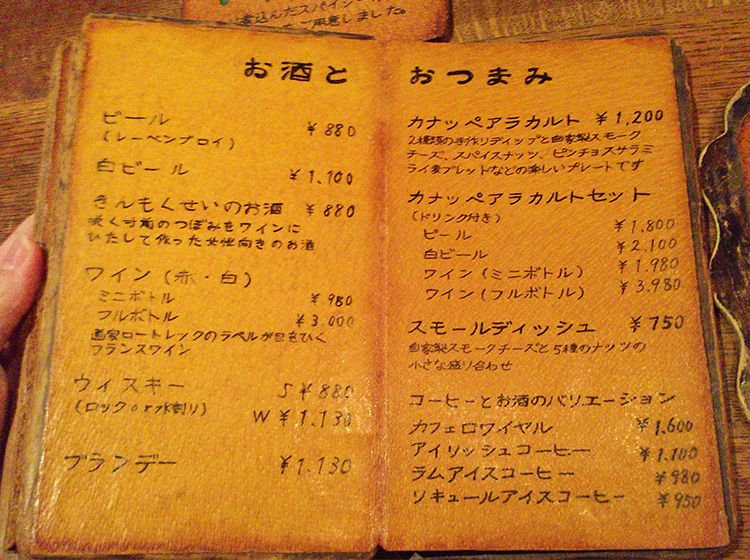 煮込んだスパイシー
ご用意しました。
お酒と
ビール ¥880
(レーベンブロイ)
白ビール ¥1,100
きんもくせいのお酒 ¥880
咲く寸前のつぼみをワインに
ひたして作った女性向きのお酒
ワイン(赤・白)
ミニボトル ¥980
フルボトル ¥3,000
画家ロートレックのラベルが目をひく
フランスワイン
ウィスキー S¥880
(ロックor水割り) W¥1,130
ブランデー ¥1,130
おつまみ
カナッペアラカルト ¥1,200
2種類の手作りディップと自家製スモーク
チーズ、スパイスナッツ、ピンチョスサラミ
ライ麦ブレッドなどの楽しいプレートです
カナッペアラカルトセット
(ドリンク付き)
ビール ¥1,800
白ビール ¥2,100
ワイン(ミニボトル) ¥1,980
ワイン(フルボトル) ¥3,980
スモールディッシュ ¥750
自家製スモークチーズと5種のナッツの
小さな盛り合わせ
コーヒーとお酒のバリエーション
カフェロワイヤル ¥1,600
アイリッシュコーヒー ¥1,100
ラムアイスコーヒー ¥980
リキュールアイスコーヒー ¥950